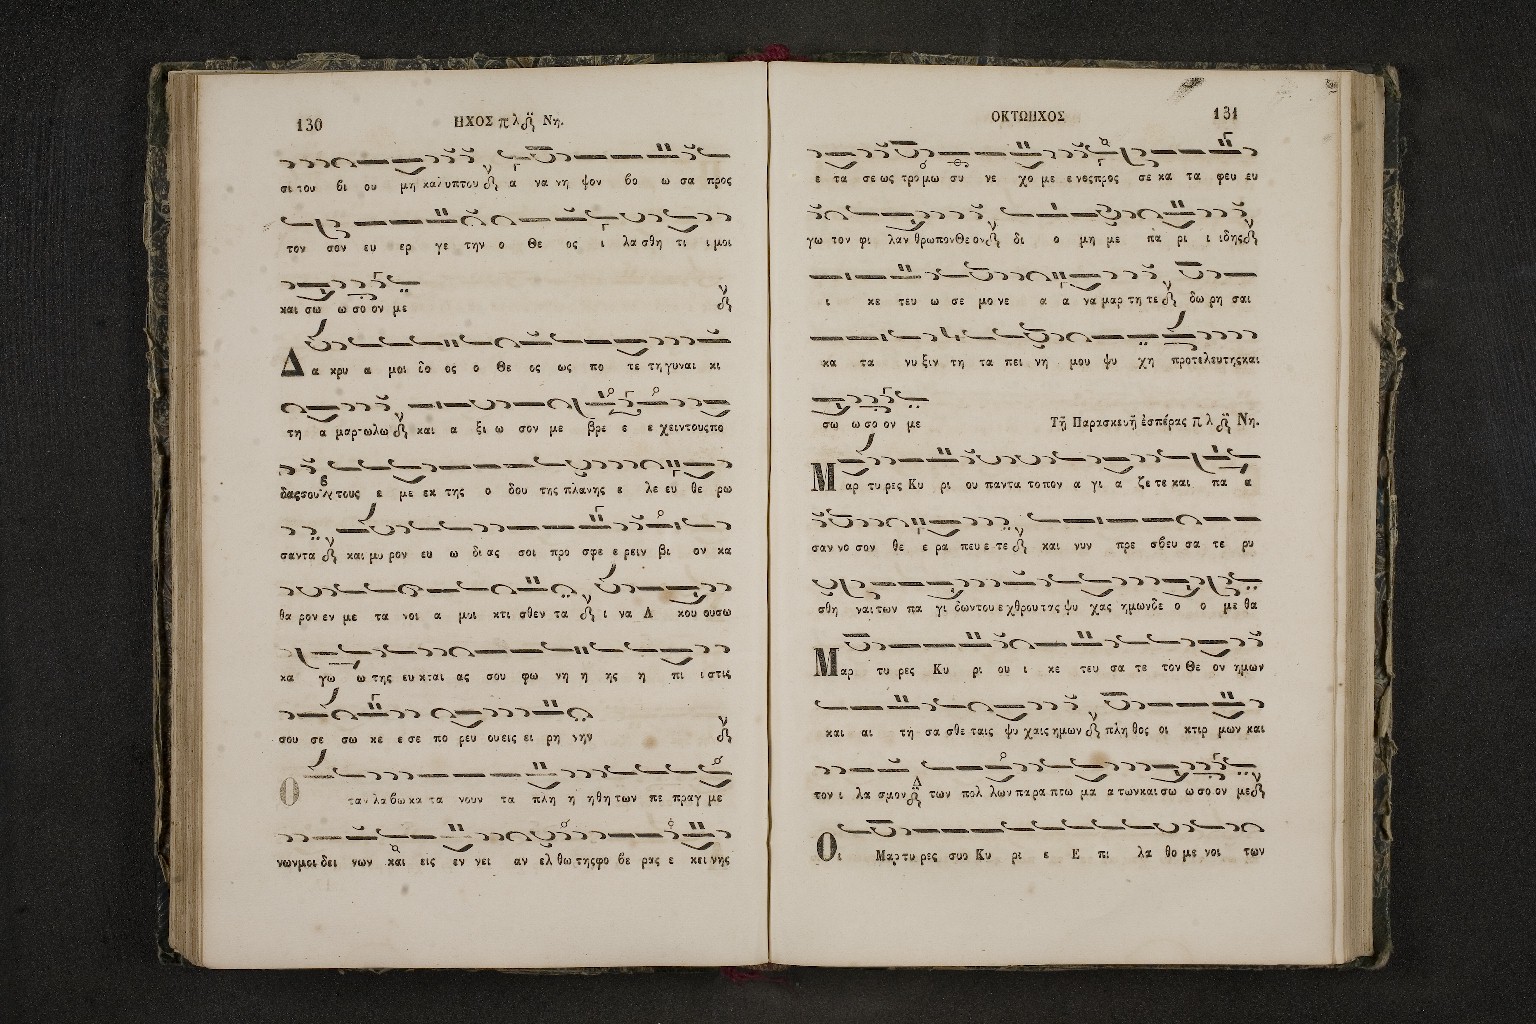 130
ΗΧΟΣ πλ Νη.
σι του βι ου μη καλυπτου α να νη ψον βο ω σα προς
τον σον ευ ερ γε την ο Θε ος ι λα σθη τι ι μοι
και σω ω σο ον με
Δα κρυ α μοι δο ος ο Θε ος ως πο τε τη γυναι κι
τη α μαρτωλω και α ξι ω σον με βρε ε ε χειν τους πο
δας σου τους ε με εκ της ο δου της πλανης ε λε ευ θε ρω
σαντα και μυ ρον ευ ω δι ας σοι προ σφε ε ρειν βι ον κα
θα ρον εν με τα νοι α μοι κτι σθεν τα ι να Α κου ουσω
κα γω ω της ευ κται ας σου φω νη η ης η πι ι στις
σου σε σω κε ε σε πο ρευ ου εις ει ρη νην
Ο ταν λα βω κα τα νουν τα πλη η ηθη των πε πραγ με
νων μοι δει νων και εις εν νει αν ελ θω της φο βε ρας ε κει νης
ΟΚΤΩΗΧΟΣ
131
ε τα σε ως τρο μω συ νε χο με ε νος προς σε κα τα φευ ευ
γω τον φι λαν θρωπον Θε ον δι ο μη με πα ρι ι ιδης
ι κε τευ ω σε μο νε α α να μαρ τη τε δω ρη σαι
κα τα νυ ξιν τη τα πει νη μου ψυ χη προ τελευτης και
σω ω σο ον με
Τῇ Παρασκευῇ ἑσπέρας πλ Νη.
Μαρ τυ ρες Κυ ρι ου παντα το πον α γι α ζε τε και πα α
σαν νο σον θε ε ρα πευ ε τε και νυν πρε σβευ σα τε ρυ
σθη ναι των πα γι δων του ε χθρου τας ψυ χας ημων δε ο ο με θα
Μαρ τυ ρες Κυ ρι ου ι κε τευ σα τε τον Θε ον ημων
και αι τη σα σθε ταις ψυ χαις ημων πλη θος οι κτιρ μων και
τον ι λα σμον των πολ λων παρα πτω μα α των και σω ω σο ον με
Οι Μαρ τυ ρες σου Κυ ρι ε Ε πι λα θο με νοι των